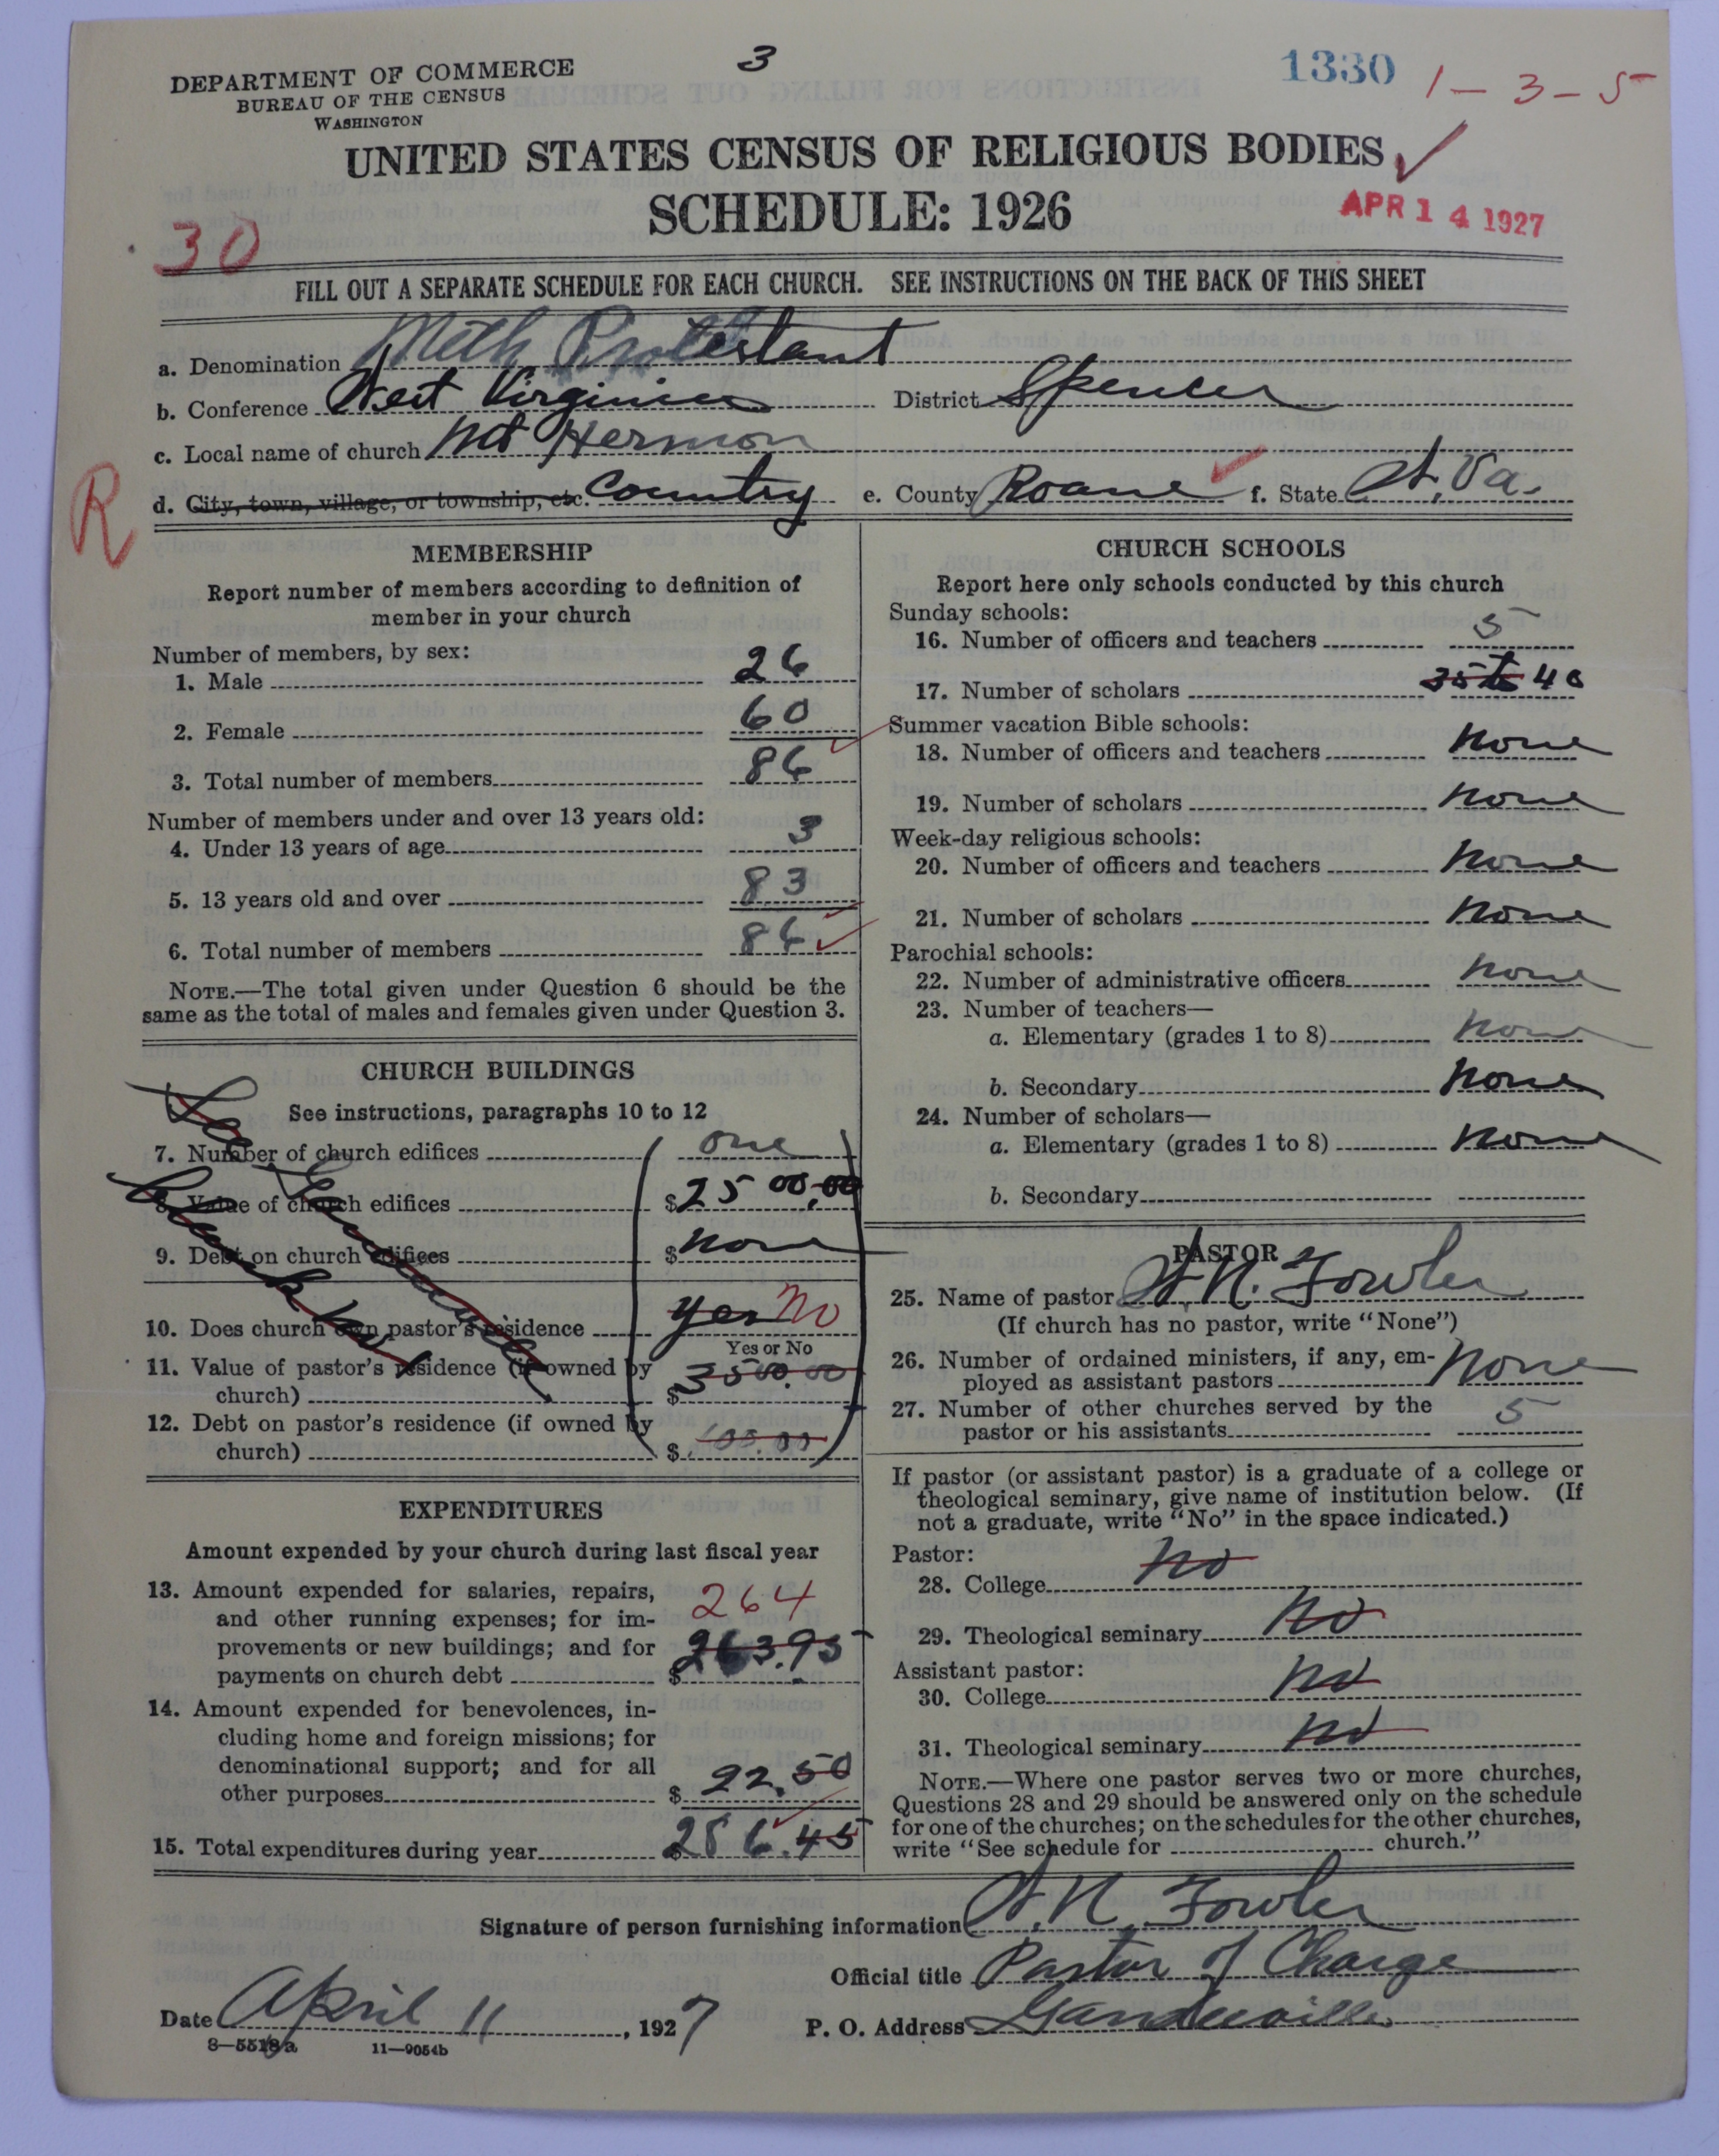 DEPARTMENT OF COMMERCE
BUREAU OF THE CENSUS
WASHINGTON
3
1330
1-3-5
UNITED STATES CENSUS OF RELIGIOUS BODIES
SCHEDULE: 1926
APR 14 1927
30
FILL OUT A SEPARATE SCHEDULE FOR EACH CHURCH. SEE INSTRUCTIONS ON THE BACK OF THIS SHEET
a. Denomination Meth Protestant
b. Conference West Virginia District Spencer
c. Local name of church Mt Hermon
R
d. City, town, village, or township, etc. Country e. County Roane f. State W. Va.
MEMBERSHIP
Report number of members according to definition of
member in your church
Number of members, by sex:
1. Male 26
2. Female 60
3. Total number of members 86
Number of members under and over 13 years old:
4. Under 13 years of age 3
5. 13 years old and over 83
6. Total number of members 86
NOTE.—The total given under Question 6 should be the
same as the total of males and females given under Question 3.
CHURCH BUILDINGS
See instructions, paragraphs 10 to 12
7. Number of church edifices one
8. Value of church edifices $2500.00
9. Debt on church edifices $none
10. Does church own pastor's residence yes No
Yes or No
11. Value of pastor's residence (if owned by
church) $3500.00
12. Debt on pastor's residence (if owned by
church) $
See
EXPENDITURES
Amount expended by your church during last fiscal year
13. Amount expended for salaries, repairs,
and other running expenses; for im-
provements or new buildings; and for
payments on church debt $263.95
264
14. Amount expended for benevolences, in-
cluding home and foreign missions; for
denominational support; and for all
other purposes $22.50
15. Total expenditures during year $286.45
CHURCH SCHOOLS
Report here only schools conducted by this church
Sunday schools:
16. Number of officers and teachers 5
17. Number of scholars 35 to 40
Summer vacation Bible schools:
18. Number of officers and teachers none
19. Number of scholars none
Week-day religious schools:
20. Number of officers and teachers none
21. Number of scholars none
Parochial schools:
22. Number of administrative officers none
23. Number of teachers—
a. Elementary (grades 1 to 8) none
b. Secondary none
24. Number of scholars—
a. Elementary (grades 1 to 8) none
b. Secondary
PASTOR
25. Name of pastor W. N. Fowler
(If church has no pastor, write "None")
26. Number of ordained ministers, if any, em-
ployed as assistant pastors none
27. Number of other churches served by the
pastor or his assistants 5
If pastor (or assistant pastor) is a graduate of a college or
theological seminary, give name of institution below. (If
not a graduate, write "No" in the space indicated.)
Pastor:
28. College no
29. Theological seminary no
Assistant pastor:
30. College no
31. Theological seminary no
NOTE.—Where one pastor serves two or more churches,
Questions 28 and 29 should be answered only on the schedule
for one of the churches; on the schedules for the other churches,
write "See schedule for church."
Signature of person furnishing information W. N. Fowler
Official title Pastor of Charge
Date April 11, 1927 P. O. Address Gandeeville
8—5518a 11—9054b